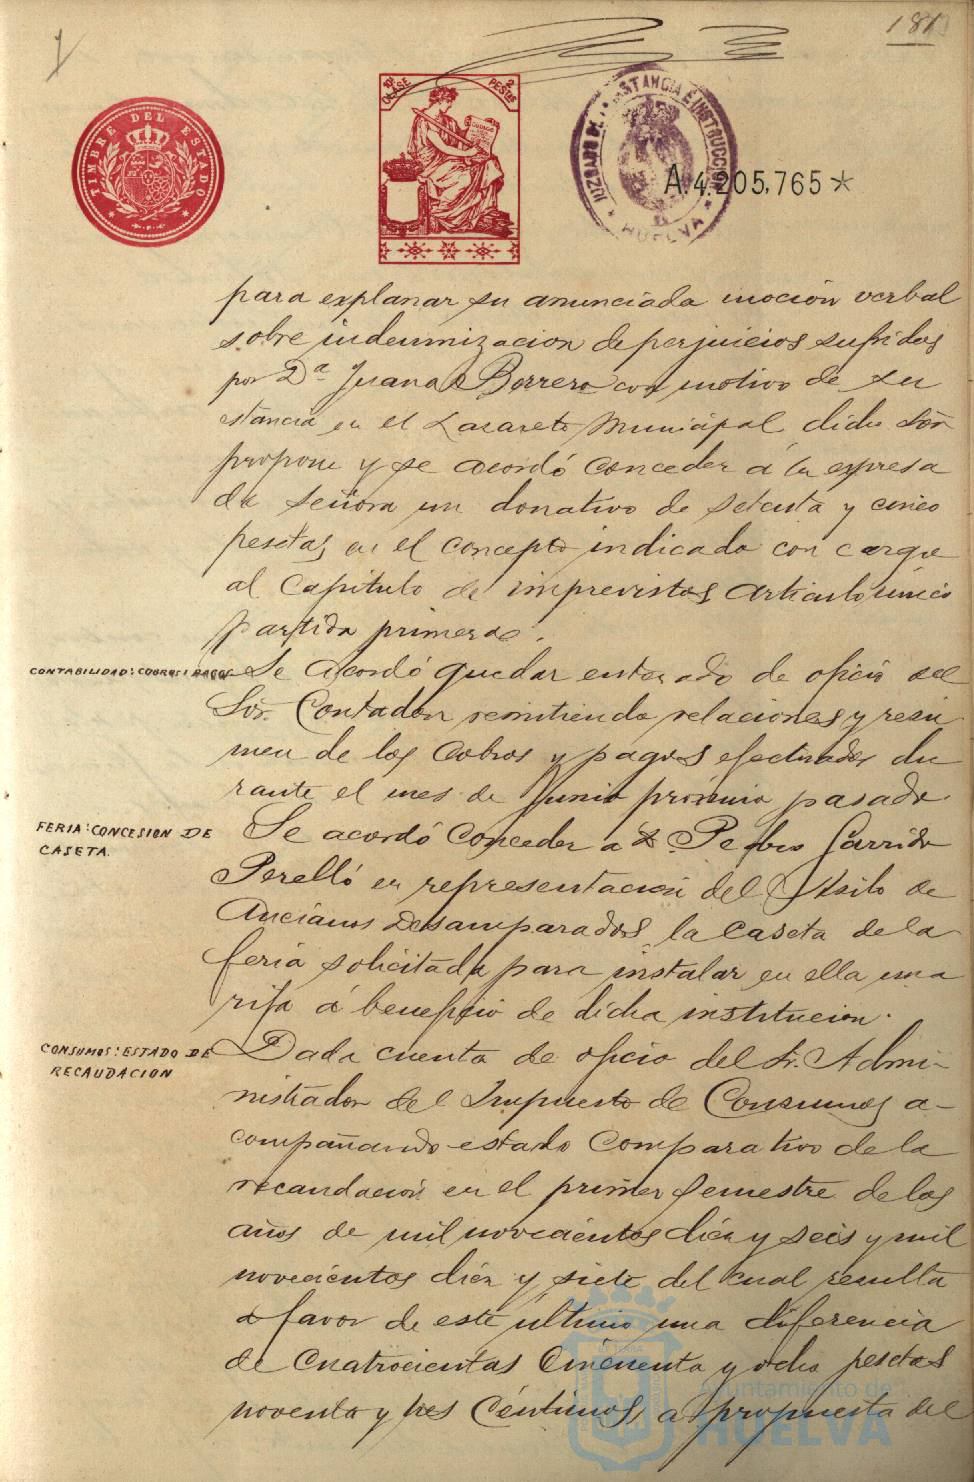 181
TIMBRE DEL ESTADO
10ª CLASE
2 PESETAS
JUZGADO DE 1ª INSTANCIA E INSTRUCCION
HUELVA
A.4.205,765*
para explanar su anunciada moción verbal
sobre indemnizacion de perjuicios sufridos
por Dª Juana Borrero con motivo de su
estancia en el Lazareto Municipal dicho Sōr
propone y se acordó conceder á la expresa
da señora un donativo de setenta y cinco
pesetas en el concepto indicado con cargo
al Capitulo de imprevistos articulo único
partida primera.
CONTABILIDAD: COBROS I PAGOS
Se acordó quedar enterado de oficio del
Sōr. Contador remitiendo relaciones y resu
men de los Cobros y pagos efectuados du
rante el mes de Junio próximo pasado.
FERIA: CONCESION DE
CASETA.
Se acordó conceder a D. Pedro Garrido
Perelló en representación del Asilo de
Ancianos Desamparados, la caseta de la
feria solicitada para instalar en ella una
rifa á beneficio de dicha institucion.
CONSUMOS: ESTADO DE
RECAUDACION
Dada cuenta de oficio del Sr. Admi-
nistrador del Impuesto de Consumos a-
compañando estado comparativo de la
recaudación en el primer semestre de los
años de mil novecientos diez y seis y mil
novecientos diez y siete del cual resulta
a favor de este último una diferencia
de cuatrocientas cincuenta y ocho pesetas
noventa y tres céntimos, a propuesta del
Ayuntamiento de
HUELVA